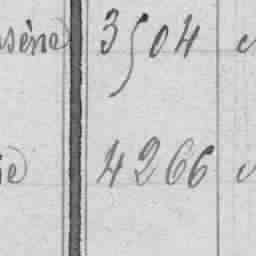 sène 3504
e 4266